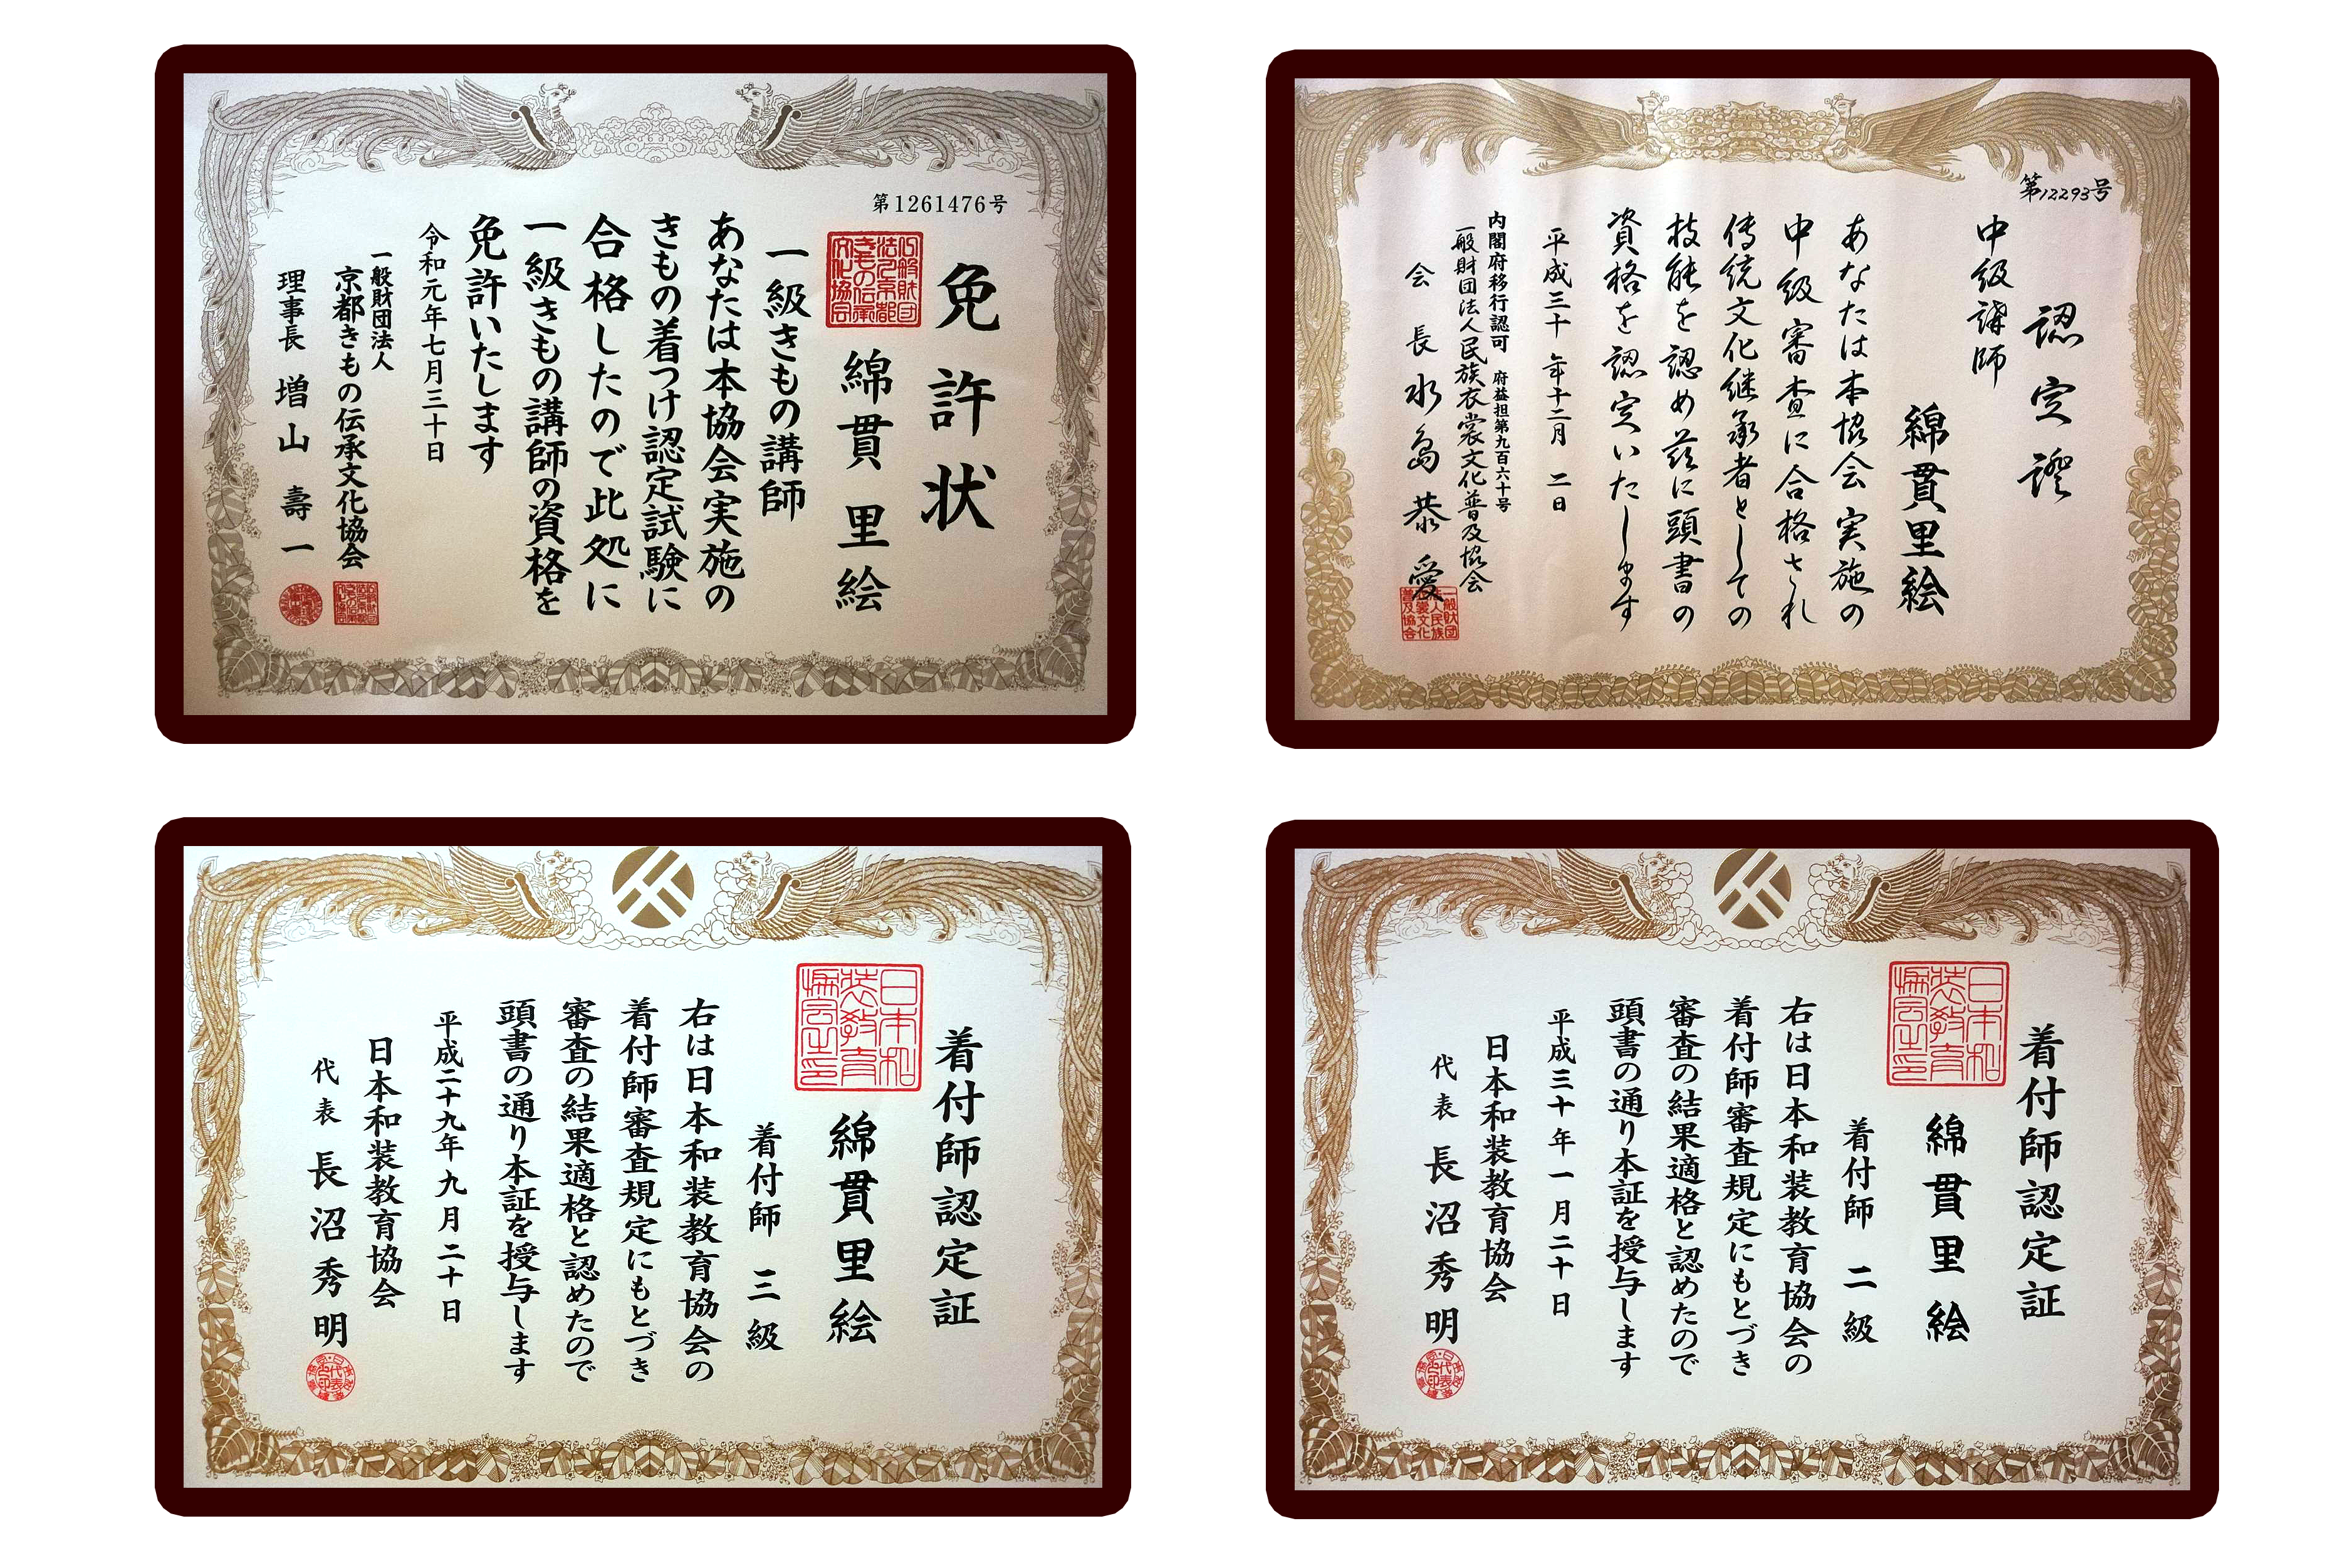 第1261476号
免許状
綿貫里絵
一級きもの講師
あなたは本協会実施の
きもの着つけ認定試験に
合格したので此処に
一級きもの講師の資格を
免許いたします
令和元年七月三十日
一般財団法人
京都きもの伝承文化協会
理事長 増山壽一
第12293号
認定證
中級講師
綿貫里絵
あなたは本協会実施の
中級審査に合格され
伝統文化継承者としての
技能を認め茲に頭書の
資格を認定いたします
平成三十年十二月二日
内閣府移行認可 府益担第九百六十号
一般財団法人民族衣裳文化普及協会
会長 水島恭愛
一般財団法人民族衣裳文化普及協会
着付師認定証
日本和装教育協会之印
綿貫里絵
着付師 三級
右は日本和装教育協会の
着付師審査規定にもとづき
審査の結果適格と認めたので
頭書の通り本証を授与します
平成二十九年九月二十日
日本和装教育協会
代表 長沼秀明
着付師認定証
日本和装教育協会之印
綿貫里絵
着付師 二級
右は日本和装教育協会の
着付師審査規定にもとづき
審査の結果適格と認めたので
頭書の通り本証を授与します
平成三十年一月二十日
日本和装教育協会
代表 長沼秀明